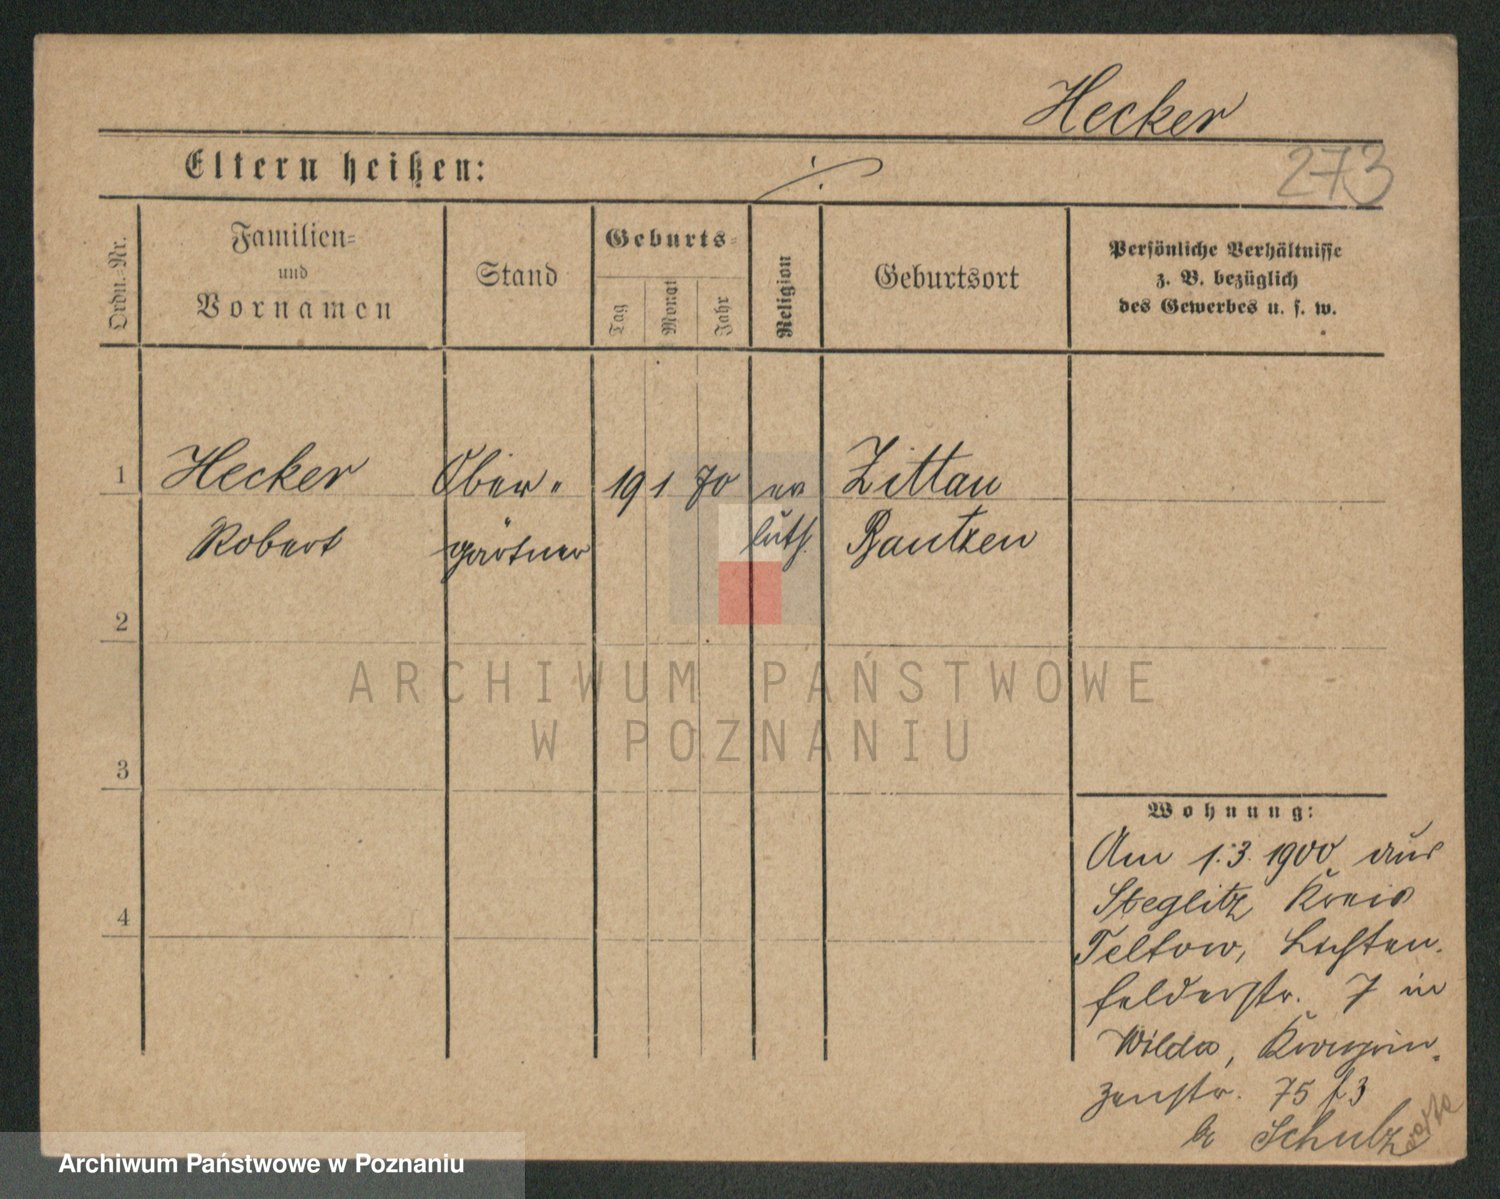 Hecker
Eltern heißen: ./.
273
Ordn.-Nr.
Familien-
und
Vornamen
Stand
Geburts-
Tag
Monat
Jahr
Religion
Geburtsort
Persönliche Verhältnisse
z. B. bezüglich
des Gewerbes u. s. w.
1 Hecker Ober- 19 1 70 ev Zittau
Robert gärtner luth. Bautzen
2
ARCHIWUM PAŃSTWOWE
W POZNANIU
3
4
Wohnung:
Am 1.3.1900 aus
Steglitz Kreis
Teltow, Lichten-
felderstr. 7 in
Wilda, Kronprin-
zenstr. 75
b Schulz
Archiwum Państwowe w Poznaniu